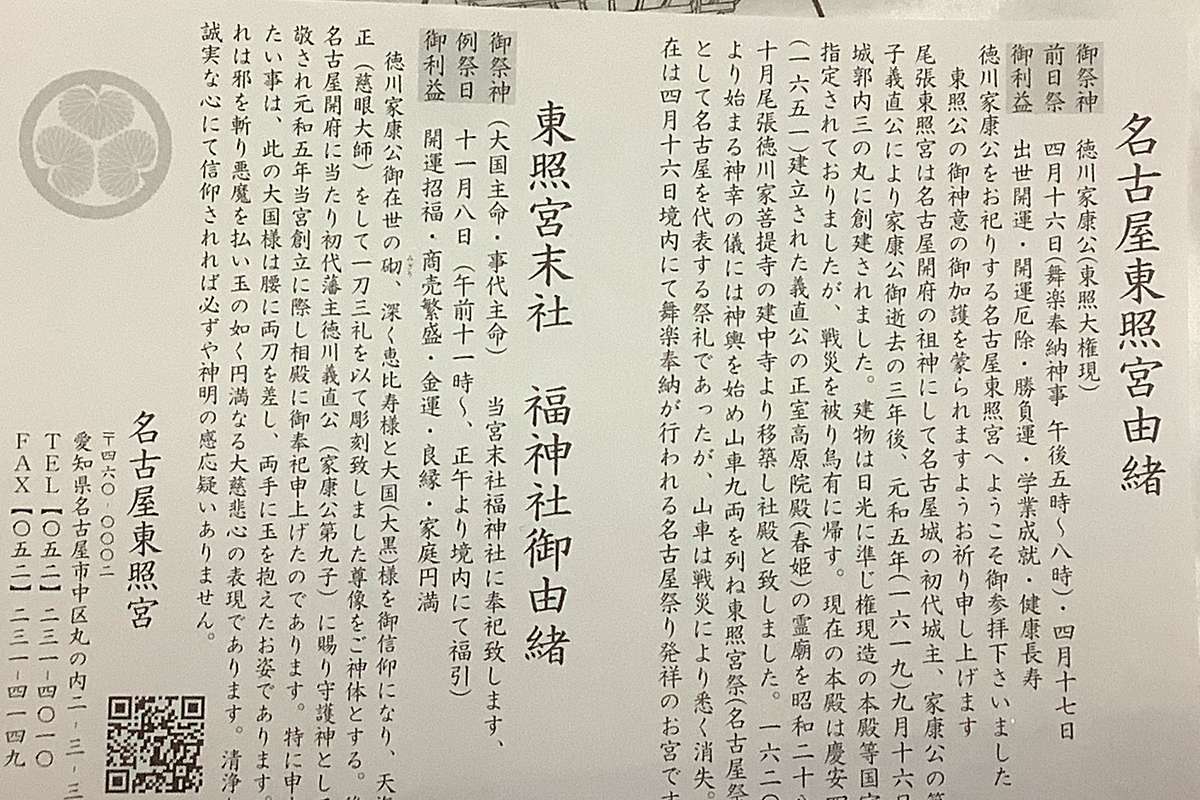 名古屋東照宮由緒
御祭神 徳川家康公(東照大権現)
前日祭 四月十六日(舞楽奉納神事 午後五時～八時)・四月十七日
御利益 出世開運・開運厄除・勝負運・学業成就・健康長寿
徳川家康公をお祀りする名古屋東照宮へようこそ御参拝下さいました
東照公の御神意の御加護を蒙られますようお祈り申し上げます
尾張東照宮は名古屋開府の祖神にして名古屋城の初代城主、家康公の第
子義直公により家康公御逝去の三年後、元和五年(一六一九)九月十六日
城郭内三の丸に創建されました。建物は日光に準じ権現造の本殿等国宝
指定されておりましたが、戦災を被り烏有に帰す。現在の本殿は慶安四
(一六五一)建立された義直公の正室高原院殿(春姫)の霊廟を昭和二十八
十月尾張徳川家菩提寺の建中寺より移築し社殿と致しました。一六二〇
より始まる神幸の儀には神輿を始め山車九両を列ね東照宮祭(名古屋祭
として名古屋を代表する祭礼であったが、山車は戦災により悉く消失。
在は四月十六日境内にて舞楽奉納が行われる名古屋祭り発祥のお宮です
東照宮末社 福神社御由緒
御祭神 (大国主命・事代主命) 当宮末社福神社に奉祀致します、
例祭日 十一月八日(午前十一時～、正午より境内にて福引)
御利益 開運招福・商売繁盛・金運・良縁・家庭円満
徳川家康公御在世の砌、深く恵比寿様と大国(大黒)様を御信仰になり、天海
正(慈眼大師)をして一刀三礼を以て彫刻致しました尊像をご神体とする。
名古屋開府に当たり初代藩主徳川義直公(家康公第九子)に賜り守護神とし
敬され元和五年当宮創立に際し相殿に御奉祀申上げたのであります。特に申し
たい事は、此の大国様は腰に両刀を差し、両手に玉を抱えたお姿であります。
れは邪を斬り悪魔を払い玉の如く円満なる大慈悲心の表現であります。清浄
誠実な心にて信仰されれば必ずや神明の感応疑いありません。
名古屋東照宮
〒四六〇-〇〇〇二
愛知県名古屋市中区丸の内二-三-三
TEL【〇五二】二三一-四〇一〇
FAX【〇五二】二三一-四一四九